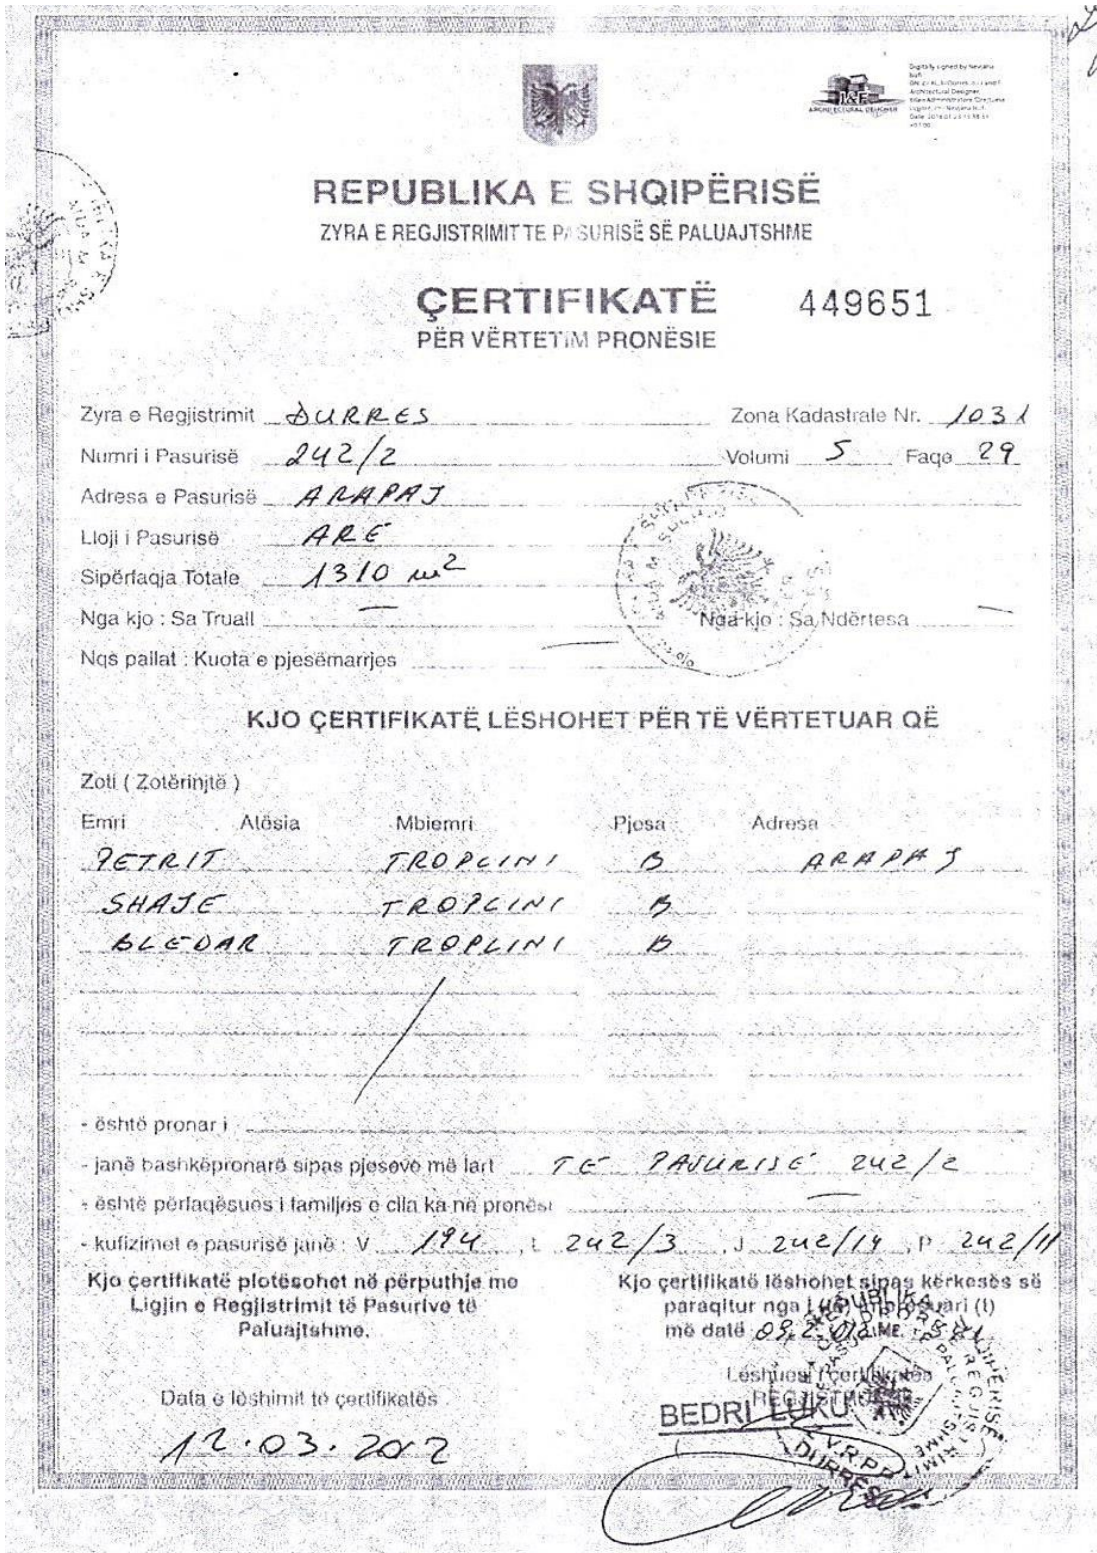 I&F
ARCHITECTURAL DESIGNER
REPUBLIKA E SHQIPËRISË
ZYRA E REGJISTRIMIT TE PASURISË SË PALUAJTSHME
ÇERTIFIKATË 449651
PËR VËRTETIM PRONËSIE
Zyra e Regjistrimit DURRES Zona Kadastrale Nr. 1031
Numri i Pasurisë 242/2 Volumi 5 Faqe 29
Adresa e Pasurisë ARAPAJ
Lloji i Pasurisë ARË
Sipërfaqja Totale 1310 m²
Nga kjo : Sa Truall — Nga kjo : Sa Ndërtesa —
Nqs pallat : Kuota e pjesëmarrjes —
KJO ÇERTIFIKATË LËSHOHET PËR TË VËRTETUAR QË
Zoti ( Zotërinjtë )
Emri Atësia Mbiemri Pjesa Adresa
PETRIT TROPLINI B ARAPAJ
SHAJE TROPLINI B
BLEDAR TROPLINI B
- është pronar i
- janë bashkëpronarë sipas pjesëve më lart TË PASURISË 242/2
- është përfaqësues i familjes e cila ka në pronësi —
- kufizimet e pasurisë janë : V 194 , L 242/3 , J 242/14 , P 242/11
Kjo çertifikatë plotësohet në përputhje me
Ligjin e Regjistrimit të Pasurive të
Paluajtshme.
Kjo çertifikatë lëshohet sipas kërkesës së
paraqitur nga i (të) interesuari (t)
më datë
Data e lëshimit të çertifikatës
12.03.2012
Lëshuesi i çertifikatës
REGJISTRUESI
BEDRI LUKU
Z.V.R.P.P
DURRES